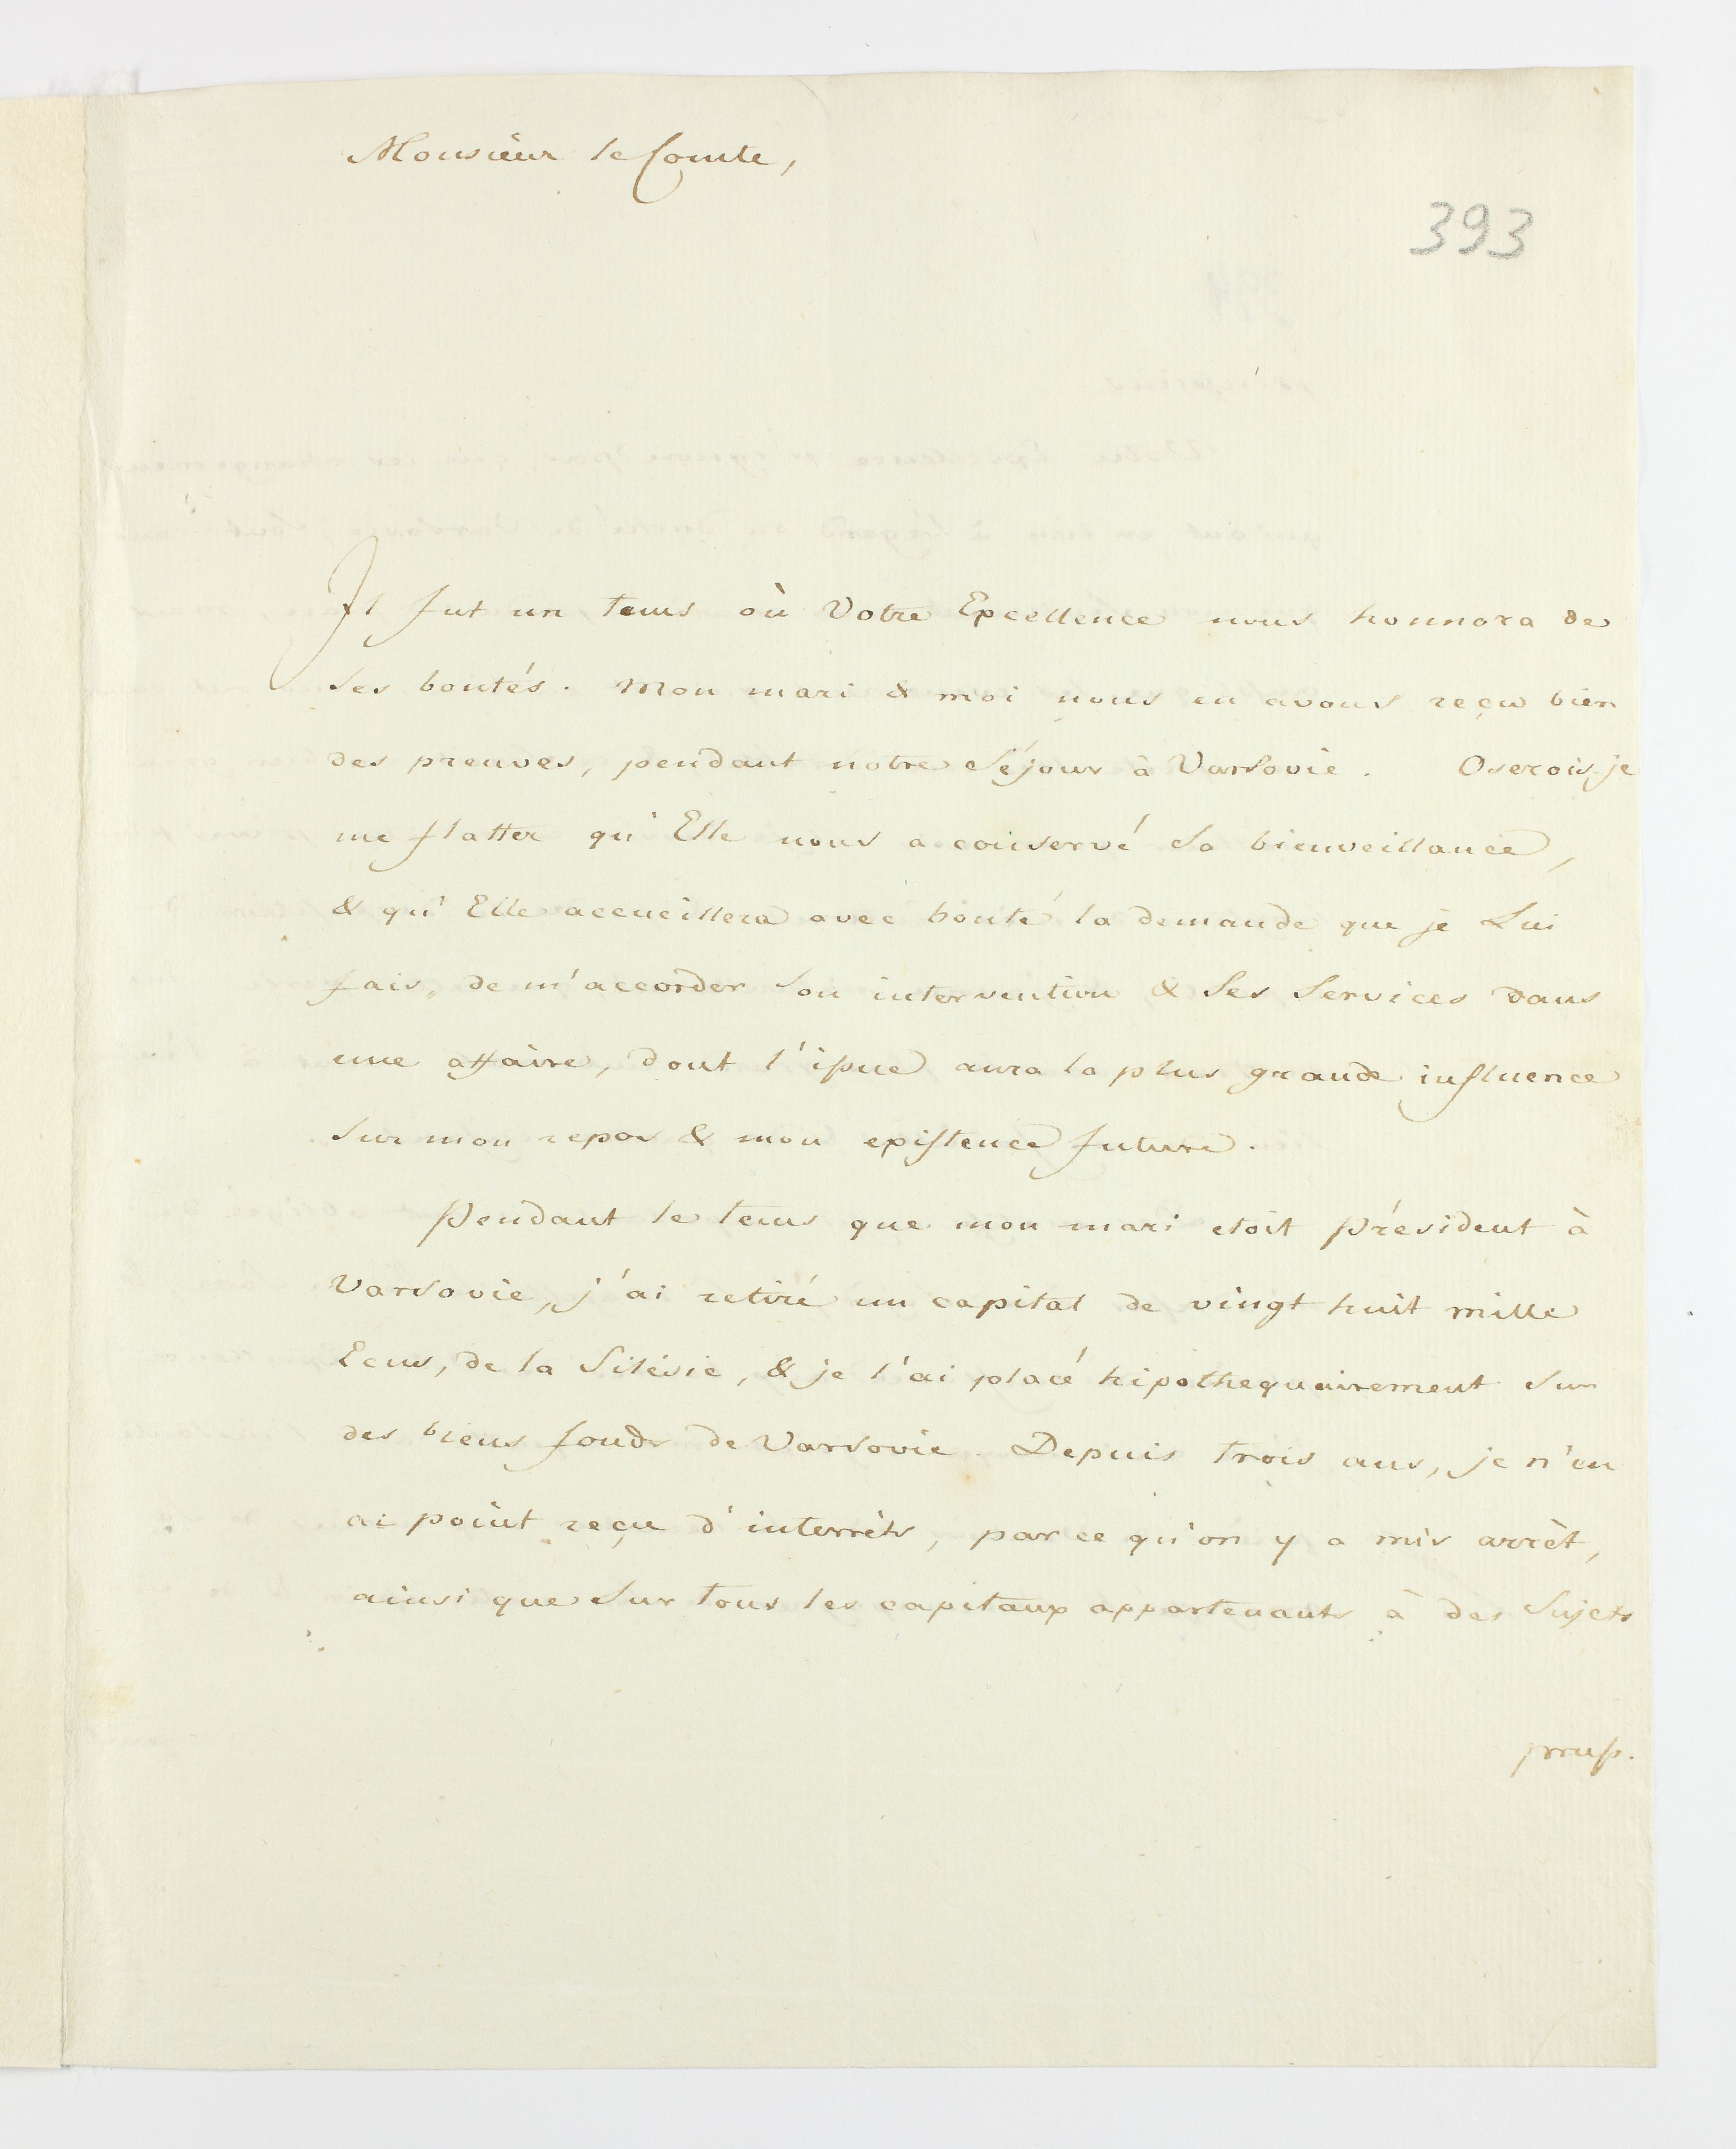 Monsieur le Comte,
393
Il fut un tems où Votre Excellence nous honnora de
Ses bontés. Mon mari & moi nous en avons reçu bien
des preuves, pendant notre Séjour à Varsovie. Oserois-je
me flatter qu'Elle nous a conservé Sa bienveillance,
& qu'Elle accueillera avec bonté la demande que je Lui
fais, de m'accorder Son intervention & Ses Services dans
une affaire, dont l'issue aura la plus grande influence
Sur mon repos & mon existence future.
Pendant le tems que mon mari etoit Président à
Varsovie, j'ai retiré un capital de vingt huit mille
Ecus, de la Silésie, & je l'ai placé hipothequairement Sur
des biens fonds de Varsovie. Depuis trois ans, je n'en
ai point reçu d'interrêts, par ce qu'on y a mis arrêt,
ainsi que Sur tous les capitaux appartenants à des Sujets
pruss.